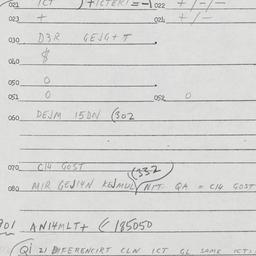 021 ICT 022 + / - / -
023 + 024 + / -
030 D3R GEJG + T
040 $
050 0
051 0 052 0
060 DEJM 15DN (302
070 C14 GOST (332
080 MIR GEJ14N KEJMUL / NPT QA = C14 GOST
901 AN14MLT+ ( 185050
Q1 21 DIFERENCIRT CLN ICT GL SAME ICT